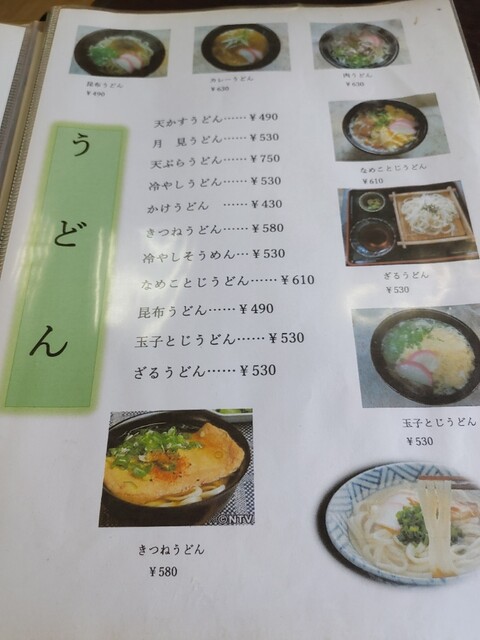 昆布うどん
¥490
カレーうどん
¥630
肉うどん
¥630
うどん
天かすうどん……¥490
月 見うどん……¥530
天ぷらうどん……¥750
冷やしうどん……¥530
かけうどん ……¥430
きつねうどん……¥580
冷やしそうめん…¥530
なめことじうどん……¥610
昆布うどん……¥490
玉子とじうどん……¥530
ざるうどん……¥530
なめことじうどん
¥610
ざるうどん
¥530
玉子とじうどん
¥530
©NTV
きつねうどん
¥580